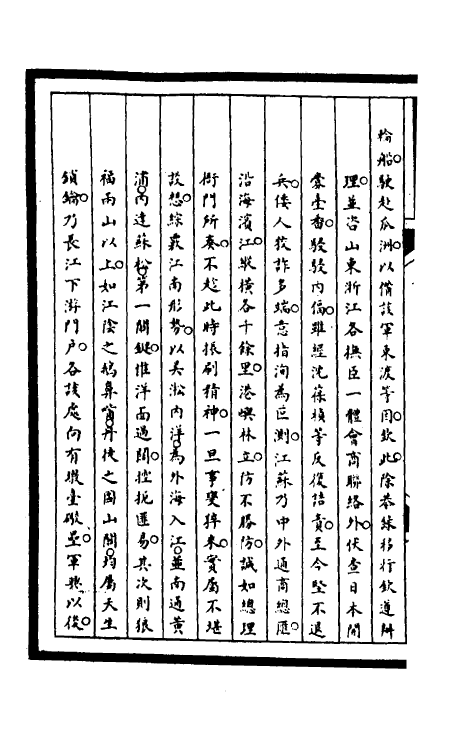 輪船駛赴瓜洲以備該軍東渡等因欽此除恭錄移行欽遵辦
理並咨山東浙江各撫臣一體會商聯絡外伏查日本閙
臺番駸駸内偪雖經沈葆楨等反復詰責至今堅不退
兵倭人狡詐多端意指洵為叵測江蘇乃中外通商總匯
沿海濱江縱横各千餘里港噢林立防不勝防誠如總理
衙門所奏不趁此時振刷精神一旦事變猝来實屬不堪
設想綜覈江南形勢以吴淞内洋為外海入江並南通黄
浦内達蘇松第一關鍵惟洋面過闊控扼匪易其次則狼
福兩山以上如江陰之鵝鼻當丹徒之圌山關均屬天生
鎖鑰乃長江下游門户各該處向有礟臺礮壘軍興以後